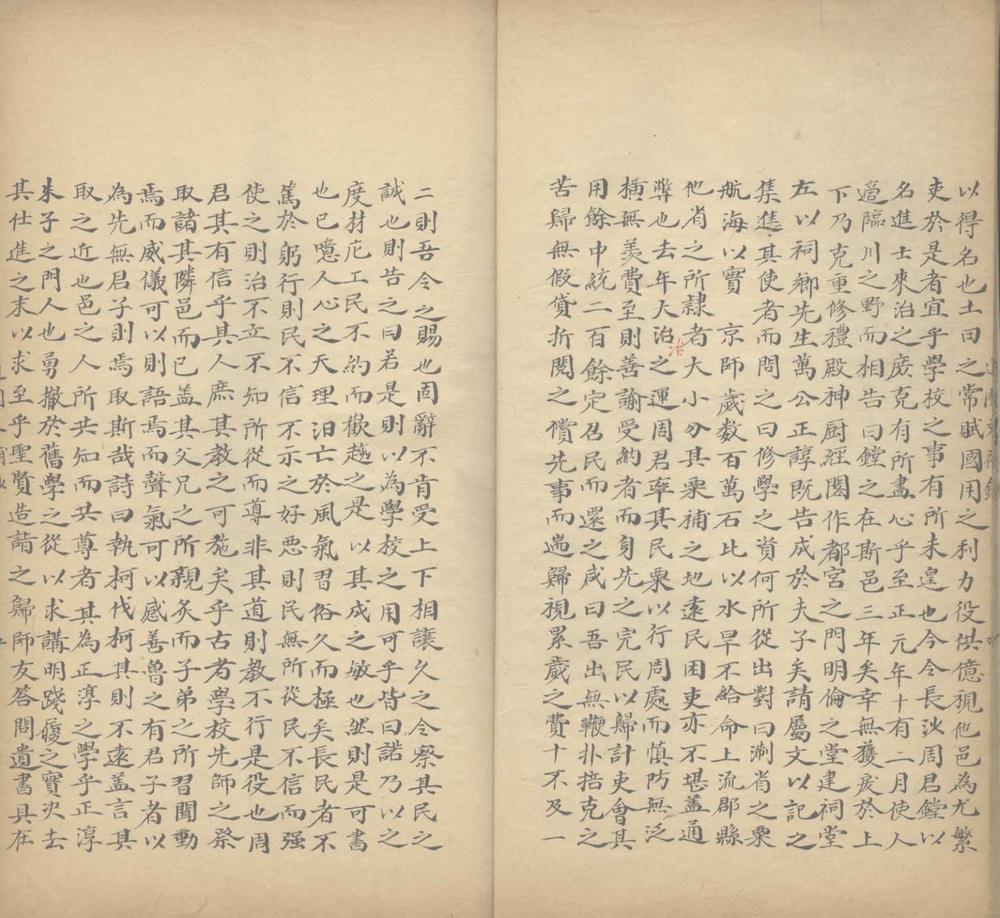 以得名也土田之常賦國用之利力役供億視他邑為尤繁
吏於是者宜乎學校之事有所未遑也今令長沙周君鏜以
名進士來治之廣克有所盡心乎至正元年十有二月使人
適臨川之野而相告曰鏜之在斯邑三年矣幸無獲戾於上
下乃克重修禮殿神厨經閣作都宮之門明倫之堂建祠堂
左以祠鄉先生萬公正諄既告成於夫子矣請屬文以記之
集進其使者而問之曰修學之資何所從出對曰浙省之粟
航海以實 京師歲数百萬石比以水旱不給命上流郡縣
他省之所隸者大小分其粟補之地遠民困吏亦不堪盖通
弊也去年大治之運周君率其民粟以行周處而慎防無泛
橫無羡費至則善諭受約者而身先之完民以歸計吏會其
用餘中統二百餘定召民而還之咸曰吾出無鞭扑掊克之
苦歸無假貸折閱之償先事而耑歸視累歲之費十不及一
二則吾令之賜也固辭不肯受上下相讓久之令察其民之
誠也則告之曰若是則以為學校之用可乎皆曰諾乃以之
度材庀工民不約而歡趨之是以其成之敏也然則是可書
也已噫人心之天理汨亡於風氣習俗久而極矣長民者不
篤於躬行則民不信不示之好惡則民無所從民不信而强
使之則治不立不知所從而導非其道則教不行是役也周
君其有信乎其人庶其教之可施矣乎古者學校先師之祭
取諸其隣邑而已盖其父兄之所親炙而子弟之所習聞動
焉而威儀可以則語焉而聲氣可以感善魯之有君子者以
為先無君子則焉取斯哉詩曰執柯伐柯其則不遠盖言其
取之近也邑之人所共知而共尊者其為正淳之學乎正淳
朱子之門人也勇撤於舊學之從以求講明踐履之實決去
其仕進之末以求至乎聖賢造詣之歸師友答問遺書具在
治